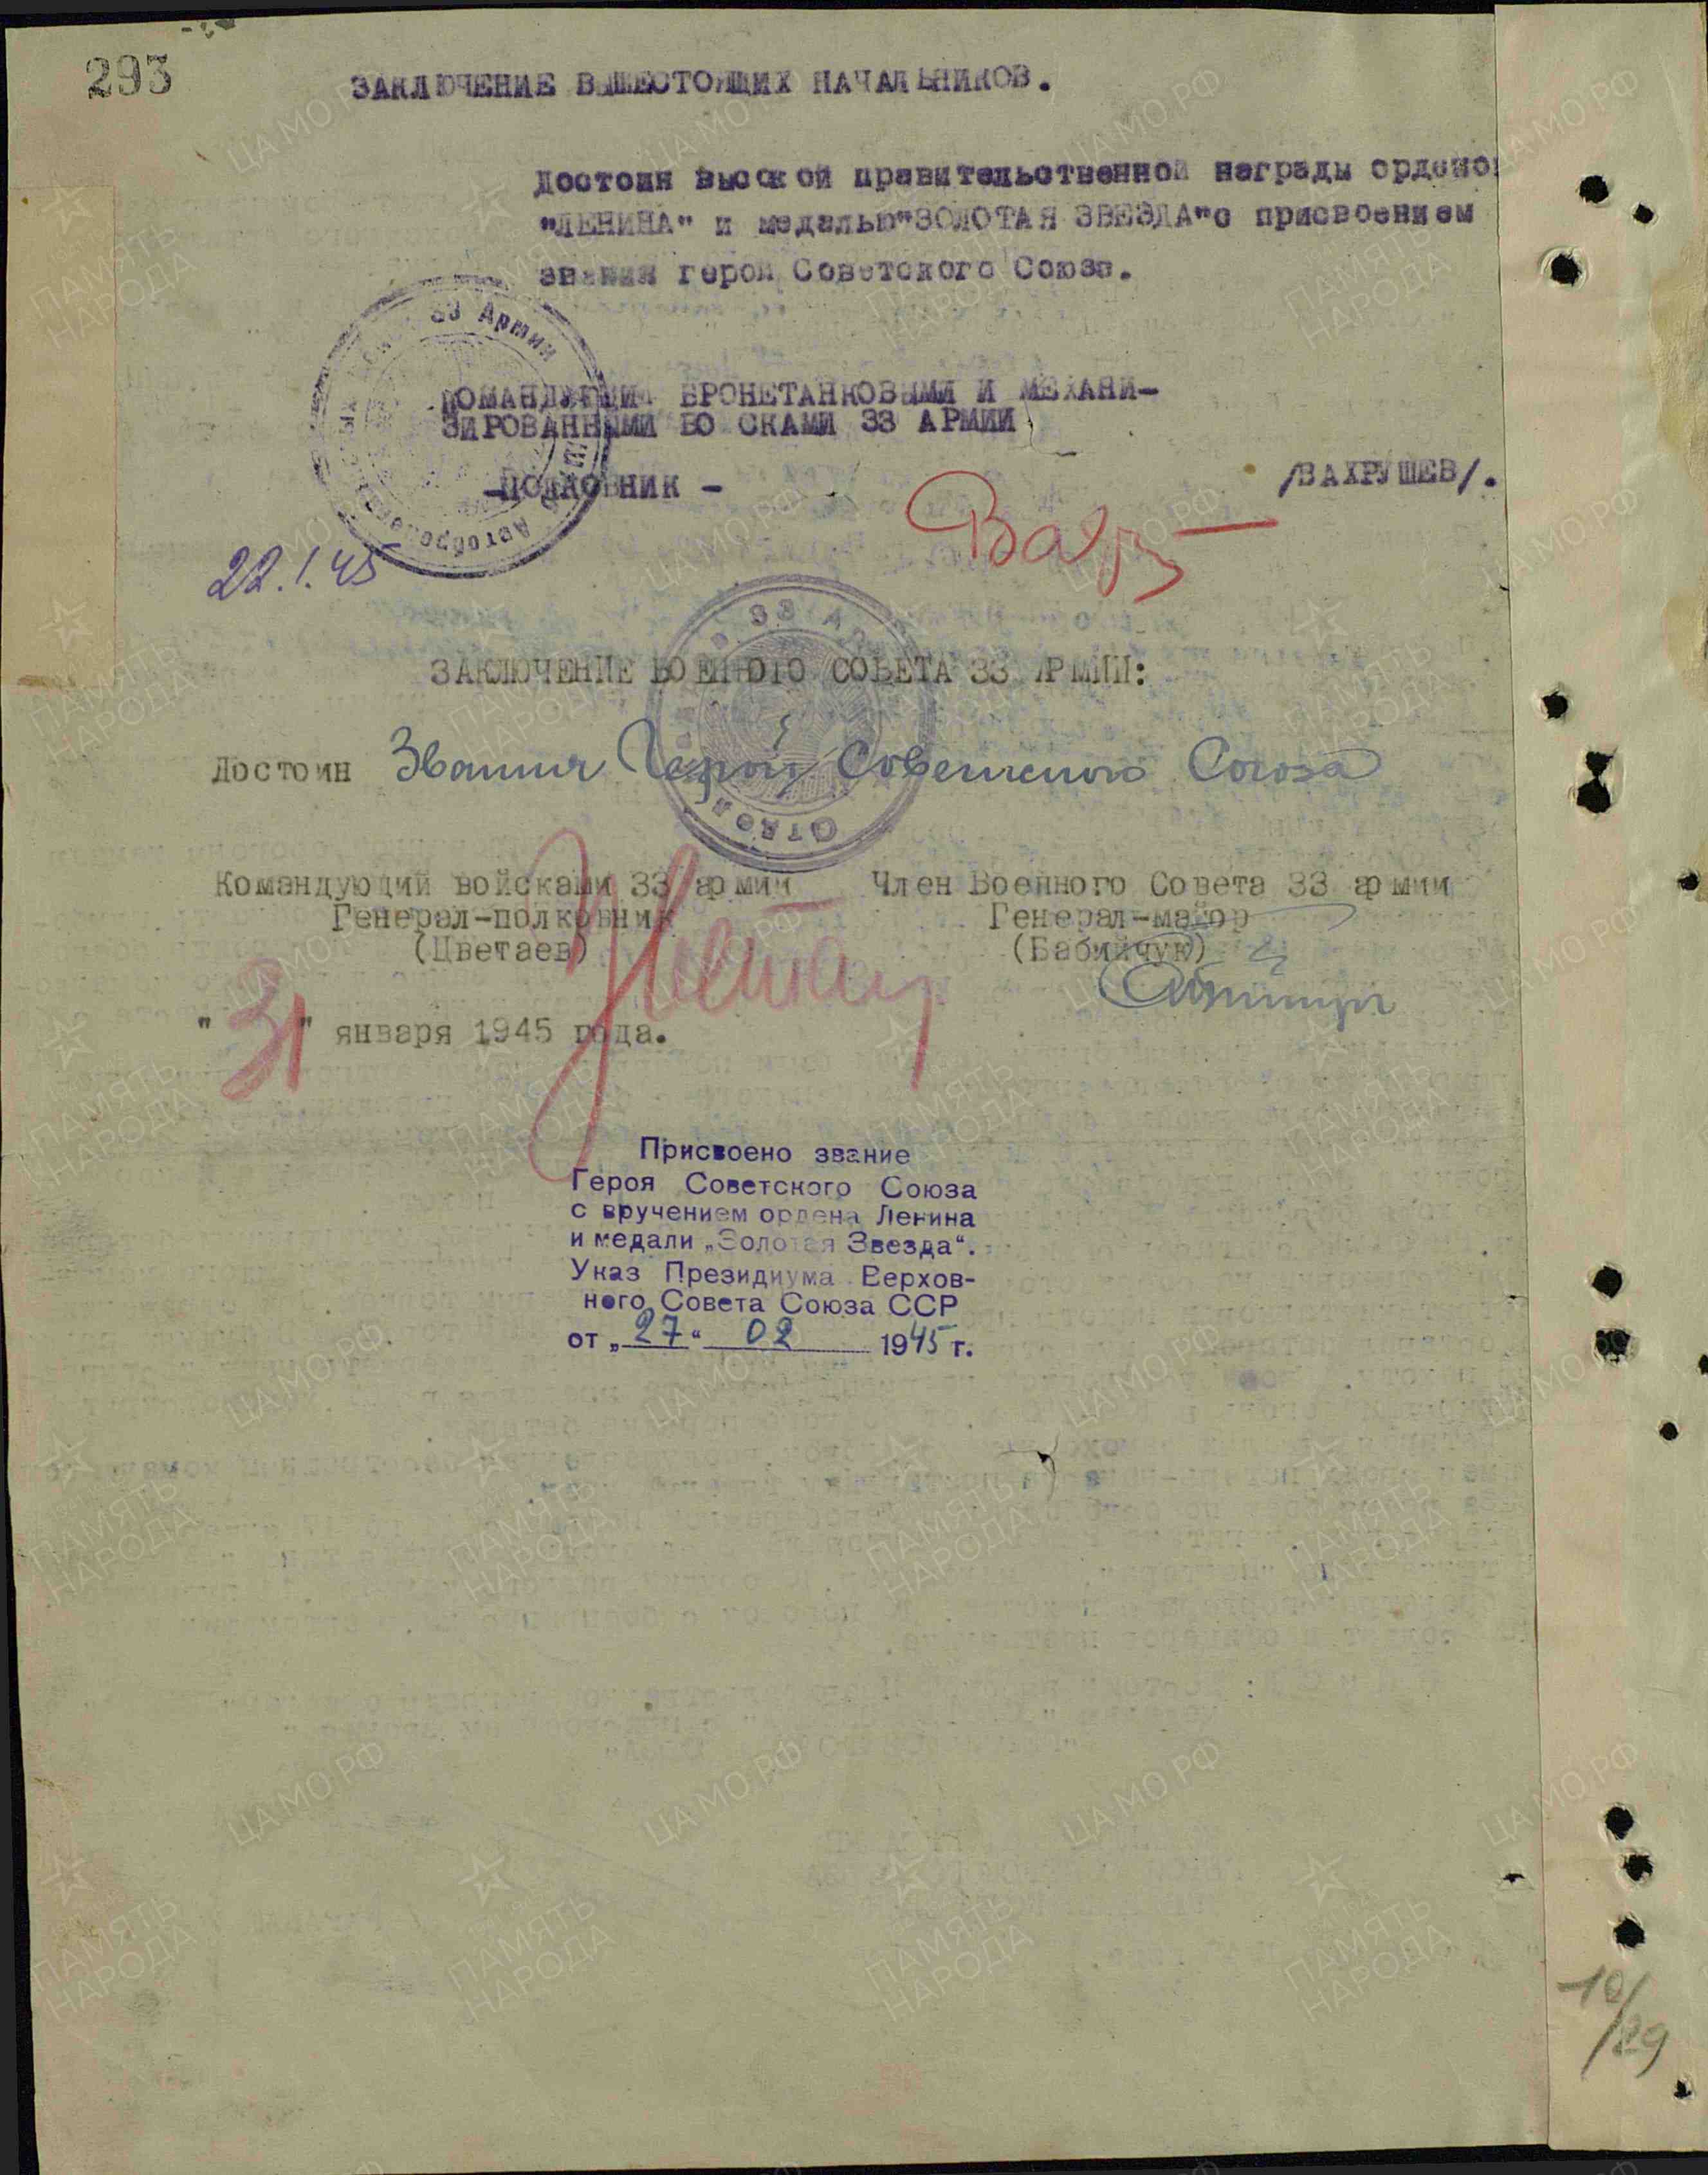 293
ЗАКЛЮЧЕНИЕ ВЫШЕСТОЯЩИХ НАЧАЛЬНИКОВ.
Достоин высокой правительственной награды ордено
"ЛЕНИНА" и медалью"ЗОЛОТАЯ ЗВЕЗДА"с присвоением
звания героя Советского Союза.
33 Армии
КОМАНДУЮЩИЙ БРОНЕТАНКОВЫМИ И МЕХАНИ-
ЗИРОВАННЫМИ ВО СКАМИ 33 АРМИИ
-ПОЛКОВНИК -
/ВАХРУШЕВ/.
22.1.45
ЗАКЛЮЧЕНИЕ ВОЕННОГО СОВЕТА 33 АРМИИ:
Достоин Звания Героя Советского Союза
Отдел
Командующий войсками 33 армии
Генерал-полковник
(Цветаев)
Член Военного Совета 33 армии
Генерал-майор
(Бабийчук)
"31" января 1945 года.
Присвоено звание
Героя Советского Союза
с вручением ордена Ленина
и медали „Золотая Звезда“.
Указ Президиума Верхов-
ного Совета Союза ССР
от „27“ 02 1945 г.
10/29